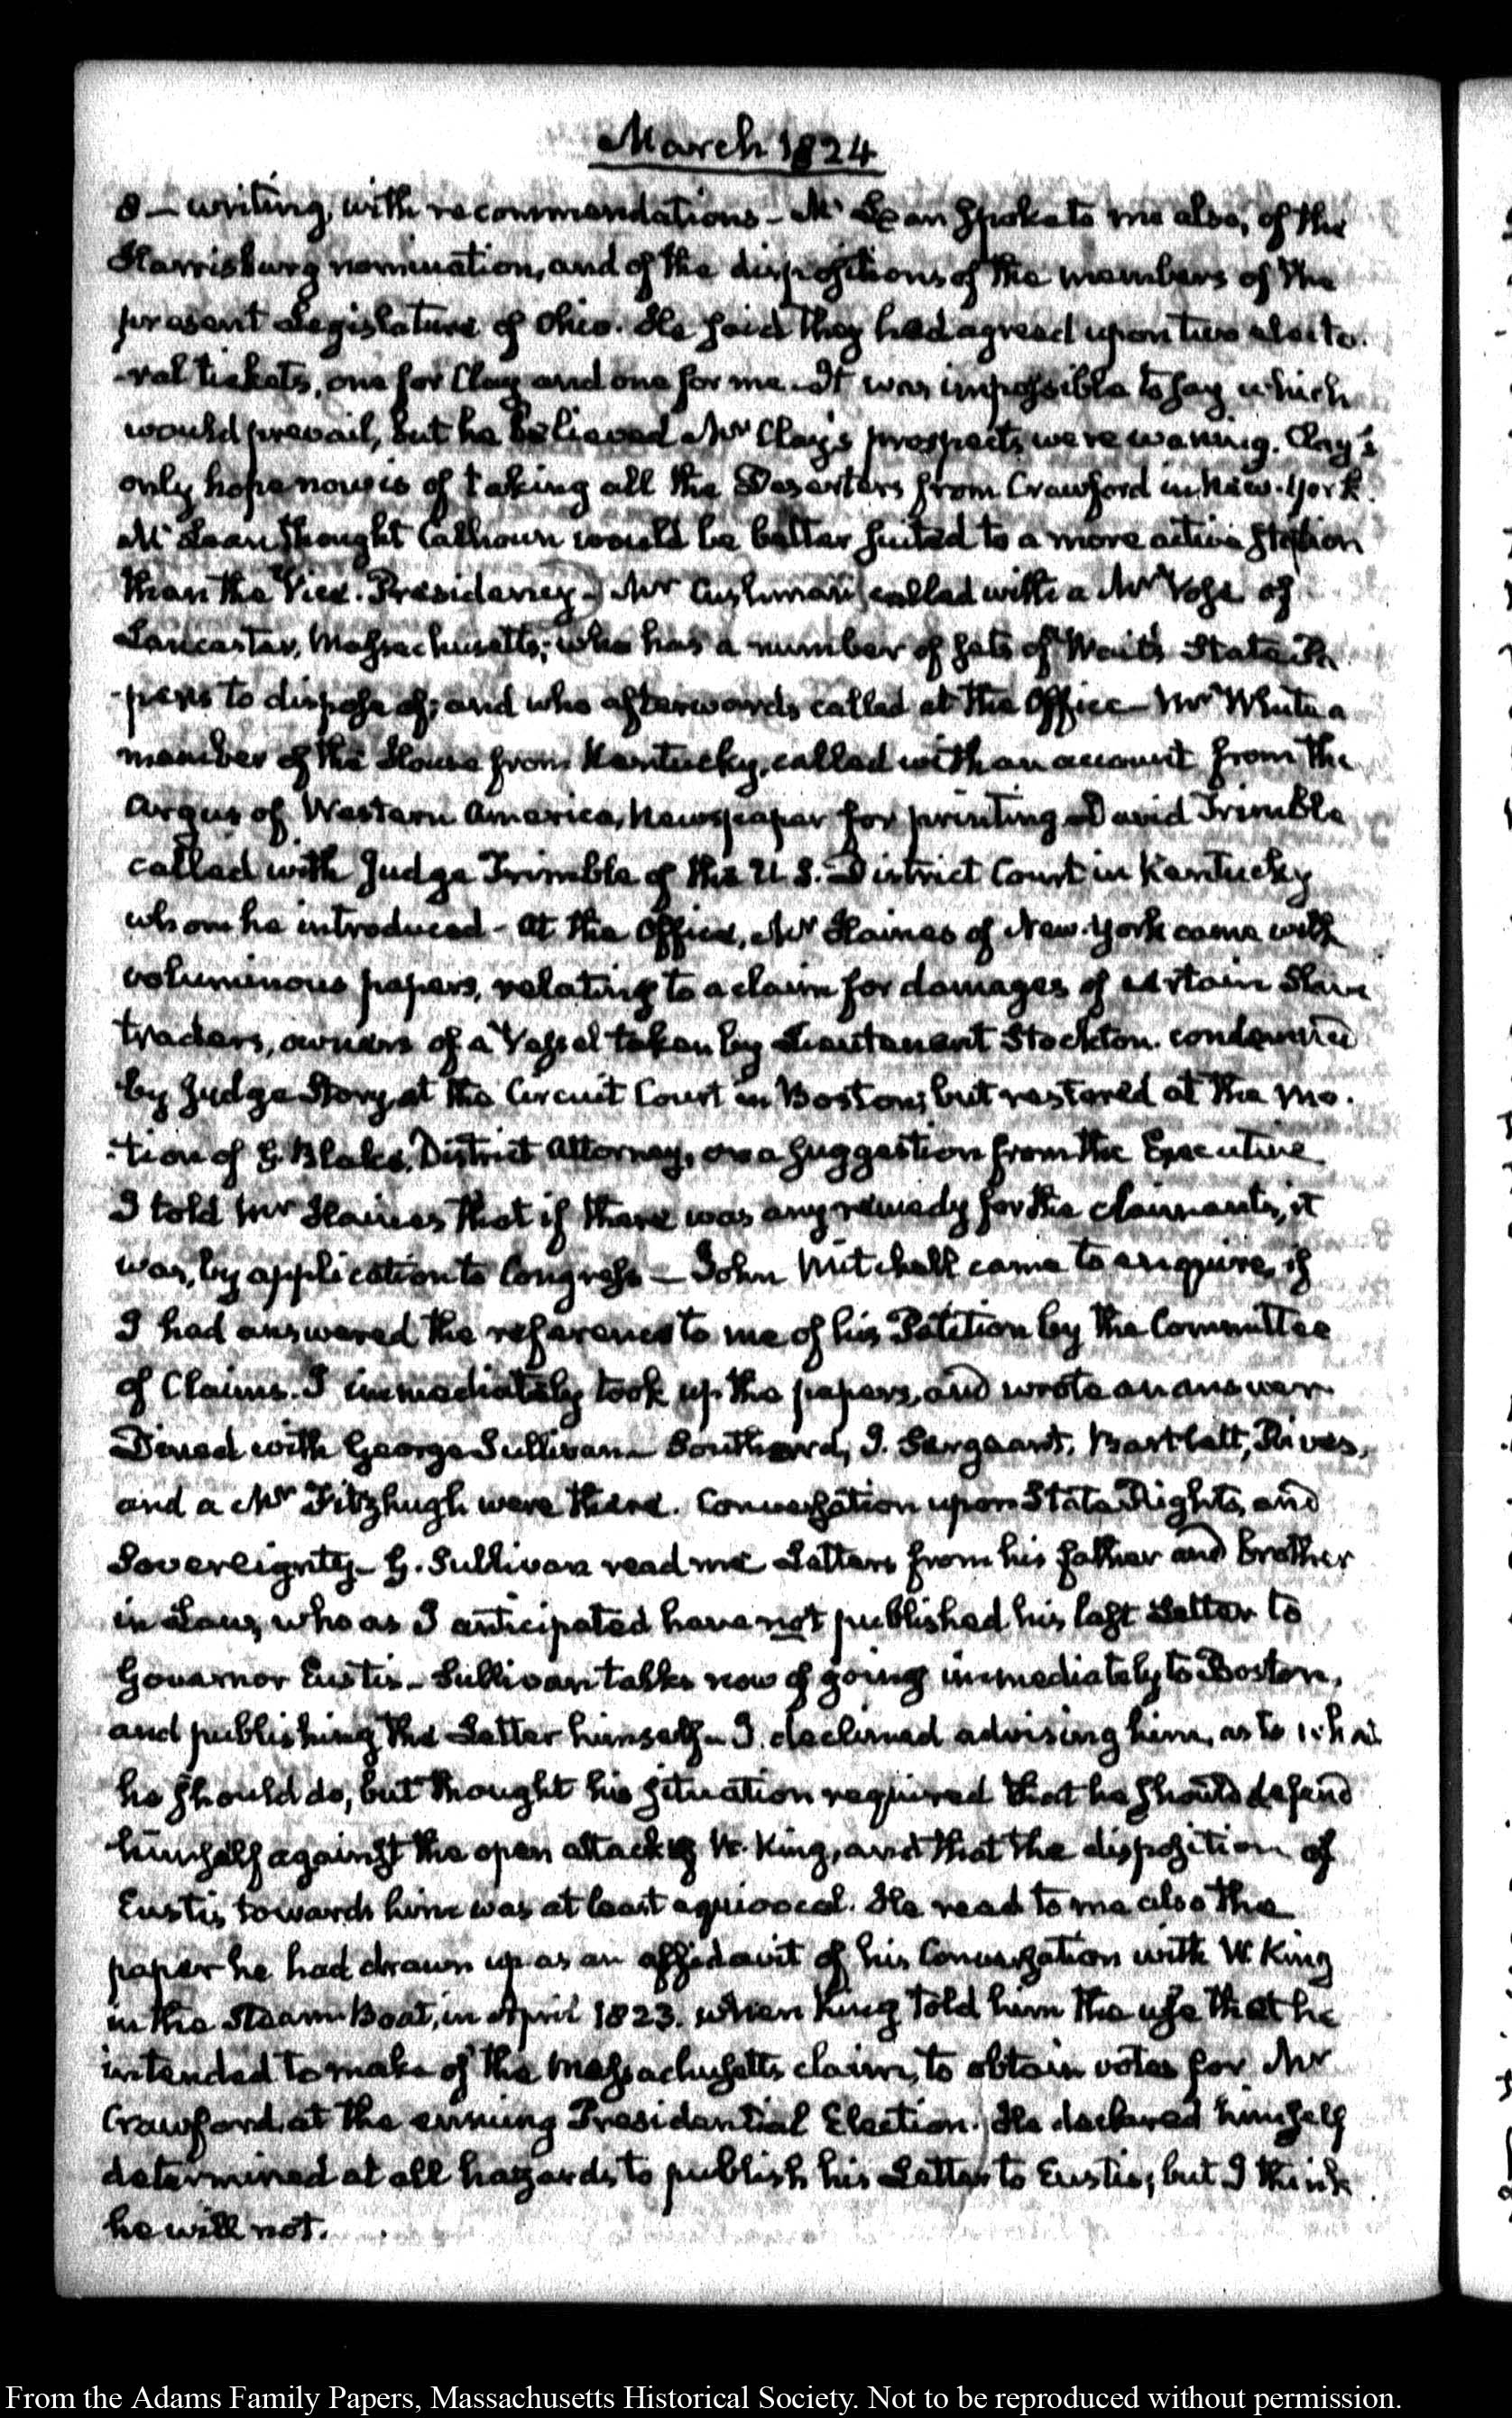 March 1824
8 — writing, with recommendations — Mc Lean spoke to me also, of the
Harrisburg nomination, and of the dispositions of the members of the
present Legislature of Ohio. He said they had agreed upon two electo-
-ral tickets, one for Clay and one for me. It was impossible to say which
would prevail, but he believed Mr Clay's prospects were waning. Clay's
only hope now is of taking all the Deserters from Crawford in New-York.
Mc Lean thought Calhoun would be better suited to a more active station
than the Vice-Presidency — Mr Cushman called with a Mr Vose of
Lancaster, Massachusetts; who has a number of sets of Wait's State Pa-
-pers to dispose of; and who afterwards called at the Office — Mr White a
member of the House from Kentucky, called with an account from the
Argus of Western America, Newspaper for printing. David Trimble
called with Judge Trimble of the U.S. District Court in Kentucky
whom he introduced — At the Office, Mr Haines of New-York came with
voluminous papers, relating to a claim for damages of certain Slave
traders, owners of a Vessel taken by Lieutenant Stockton. condemned
by Judge Story, at the Circuit Court in Boston; but restored at the mo-
-tion of G. Blake, District Attorney, on a suggestion from the Executive.
I told Mr Haines that if there was any remedy for the claimants, it
was, by application to Congress — John Mitchell came to enquire, if
I had answered the reference to me of his Petition by the Committee
of Claims. I immediately took up the papers, and wrote an answer.
Dined with George Sullivan — Southard, J. Sergeant, Bartlett, Rives,
and a Mr Fitzhugh were there. Conversation upon State Rights, and
Sovereignty — G. Sullivan read me Letters from his father and brother
in Law, who as I anticipated have not published his last Letter to
Governor Eustis — Sullivan talks now of going immediately to Boston,
and publishing the Letter himself — I declined advising him, as to what
he should do, but thought his situation required that he should defend
himself against the open attack of W. King, and that the disposition of
Eustis towards him was at least equivocal. He read to me also the
paper he had drawn up as an affidavit of his Conversation with W. King
in the Steam-Boat, in April 1823. when King told him the use that he
intended to make of the Massachusetts claim, to obtain votes for Mr
Crawford, at the ensuing Presidential Election. He declared himself
determined at all hazards to publish his Letter to Eustis; but I think
he will not.
From the Adams Family Papers, Massachusetts Historical Society. Not to be reproduced without permission.